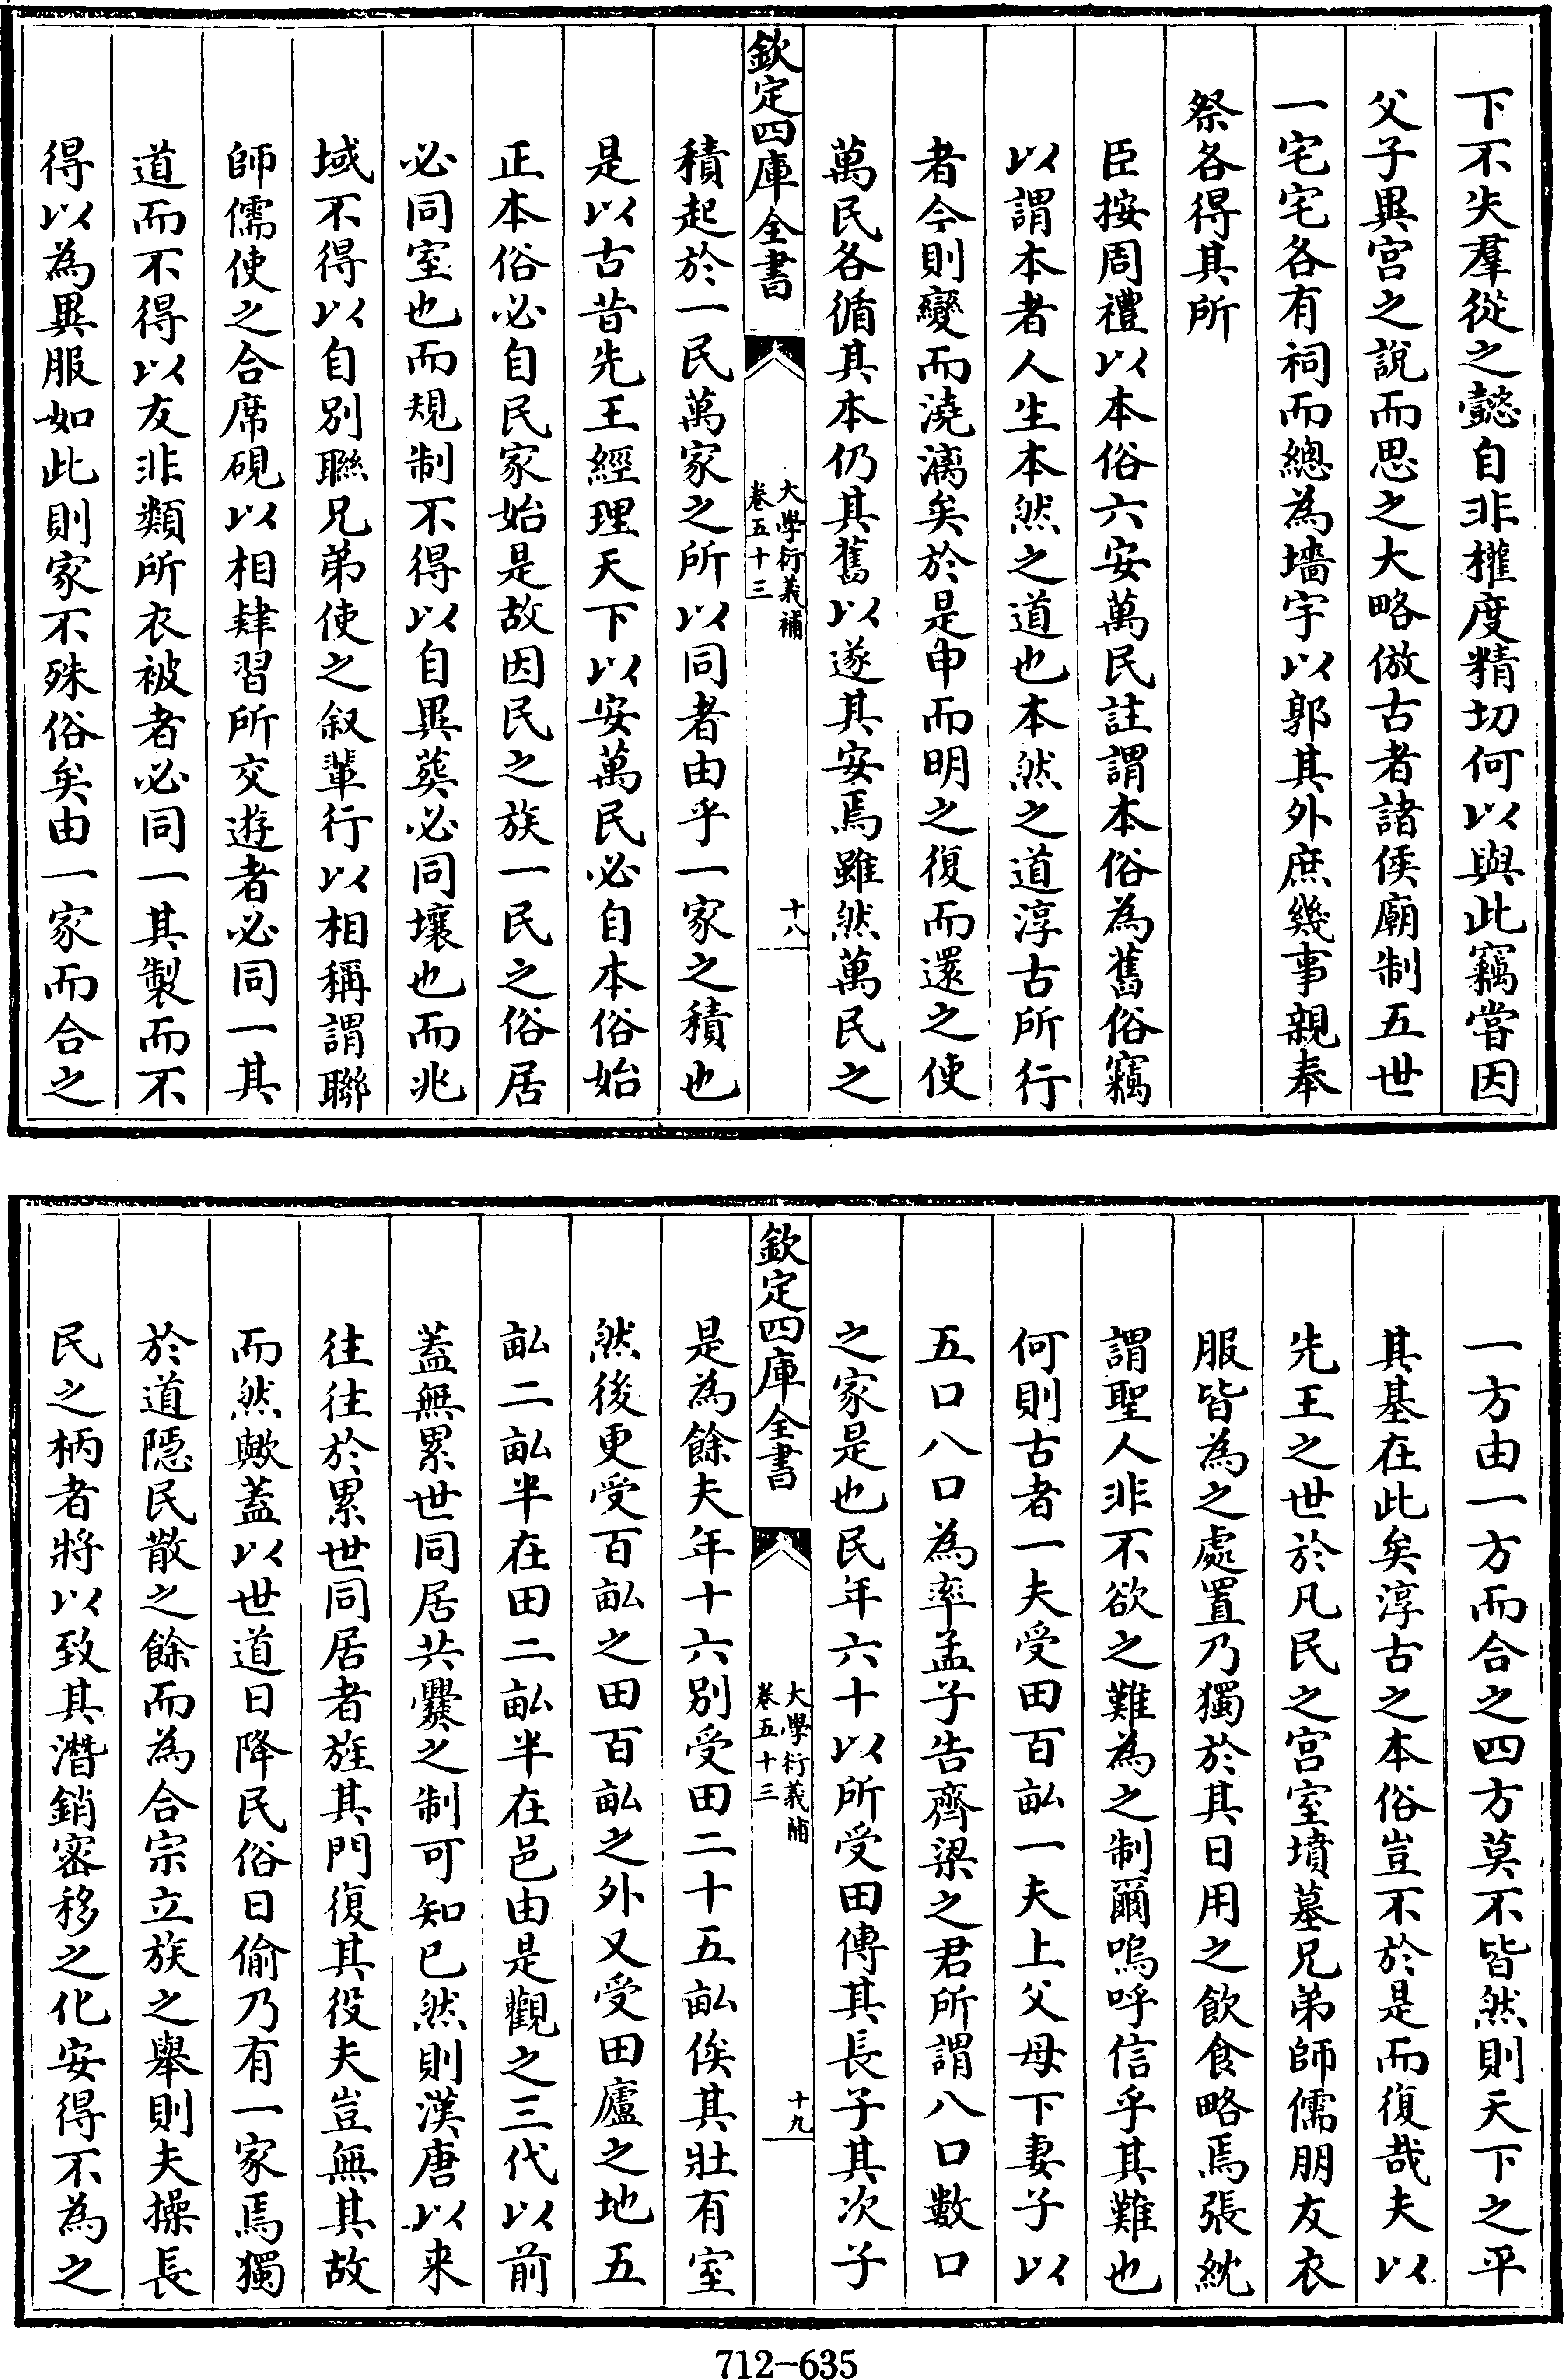 下不失羣從之懿自非權度精切何以與此竊嘗因
父子異宮之說而思之大略倣古者諸侯廟制五世
一宅宅各有祠而總為墻宇以郭其外庶幾事親奉
祭各得其所
臣按周禮以本俗六安萬民註謂本俗為舊俗竊
以謂本者人生本然之道也本然之道淳古所行
者今則變而澆漓矣於是申而明之復而還之使
萬民各循其本仍其舊以遂其安焉雖然萬民之
欽定四庫全書
大學衍義補
卷五十三
十八
積起於一民萬家之所以同者由乎一家之積也
是以古昔先王經理天下以安萬民必自本俗始
正本俗必自民家始是故因民之族一民之俗居
必同室也而規制不得以自異葬必同壤也而兆
域不得以自別聯兄弟使之叙輩行以相稱謂聯
師儒使之合席硯以相肄習所交遊者必同一其
道而不得以友非類所衣被者必同一其製而不
得以為異服如此則家不殊俗矣由一家而合之
一方由一方而合之四方莫不皆然則天下之平
其基在此矣淳古之本俗豈不於是而復哉夫以
先王之世於凡民之宮室墳墓兄弟師儒朋友衣
服皆為之處置乃獨於其日用之飲食略焉張紞
謂聖人非不欲之難為之制爾嗚呼信乎其難也
何則古者一夫受田百畝一夫上父母下妻子以
五口八口為率孟子告齊梁之君所謂八口數口
之家是也民年六十以所受田傳其長子其次子
欽定四庫全書
大學衍義補
卷五十三
十九
是為餘夫年十六別受田二十五畝俟其壯有室
然後更受百畝之田百畝之外又受田廬之地五
畝二畝半在田二畝半在邑由是觀之三代以前
蓋無累世同居共爨之制可知已然則漢唐以来
往往於累世同居者旌其門復其役夫豈無其故
而然歟蓋以世道日降民俗日偷乃有一家焉獨
於道隱民散之餘而為合宗立族之舉則夫操長
民之柄者將以致其潛銷密移之化安得不為之
712-635